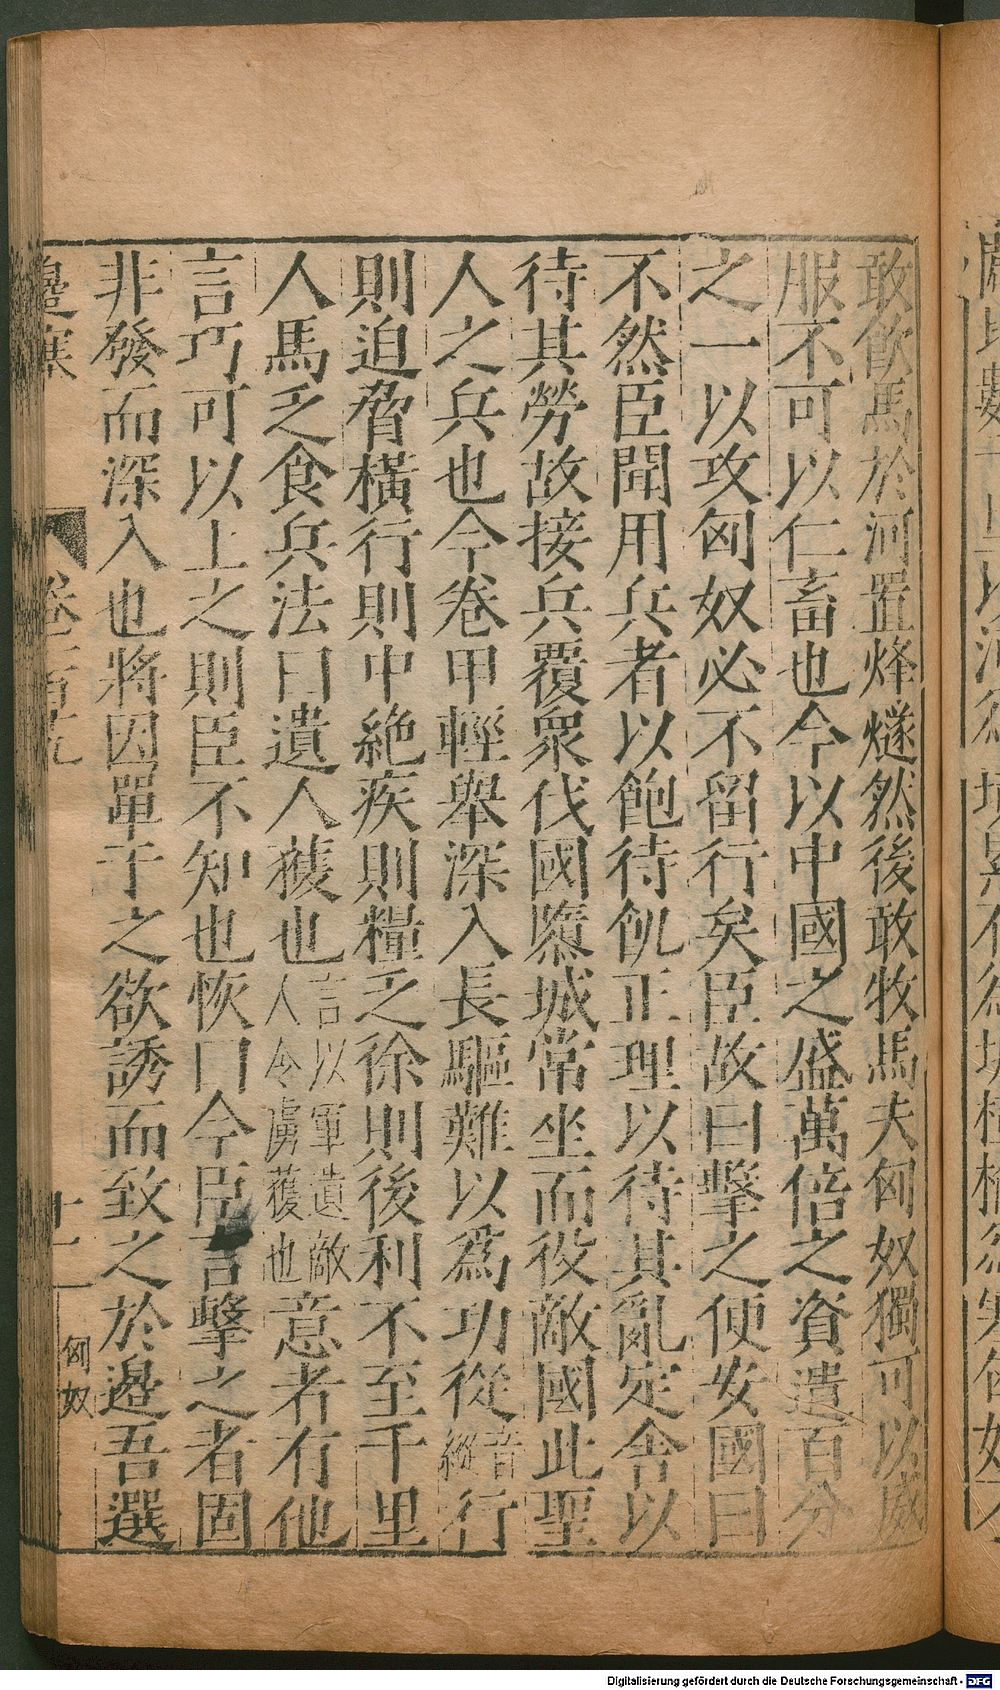 敢飲馬於河置烽燧然後敢牧馬夫匈奴獨可以威
服不可以仁畜也今以中國之盛萬倍之資遣百分
之一以攻匈奴必不留行矣臣故曰擊之便安國曰
不然臣聞用兵者以飽待飢正理以待其亂定舍以
待其勞故接兵覆衆伐國隳城常坐而役敵國此聖
人之兵也今卷甲輕舉深入長驅難以爲功從音縱行
則迫脅橫行則中絶疾則糧乏徐則後利不至千里
人馬乏食兵法曰遺人獲也言以軍遺敵人令虜獲也意者有他
言巧可以上之則臣不知也恢曰今臣言擊之者固
非發而深入也將因單于之欲誘而致之於邊吾選
邊塞
卷
十一
匈奴
Digitalisierung gefördert durch die Deutsche Forschungsgemeinschaft - DFG